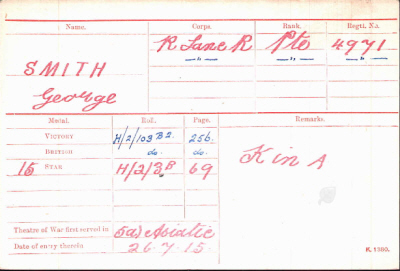 Name. Corps. Rank. Regtl. No.
SMITH R Lanc R Pte 4971
George —"— —"— —"—
Medal. Roll. Page. Remarks.
VICTORY H/2/103 B2. 256.
BRITISH do. do.
15 STAR H/2/3B 69 K in A
Theatre of War first served in (5a) Asiatic
Date of entry therein 26-7-15
K. 1380.